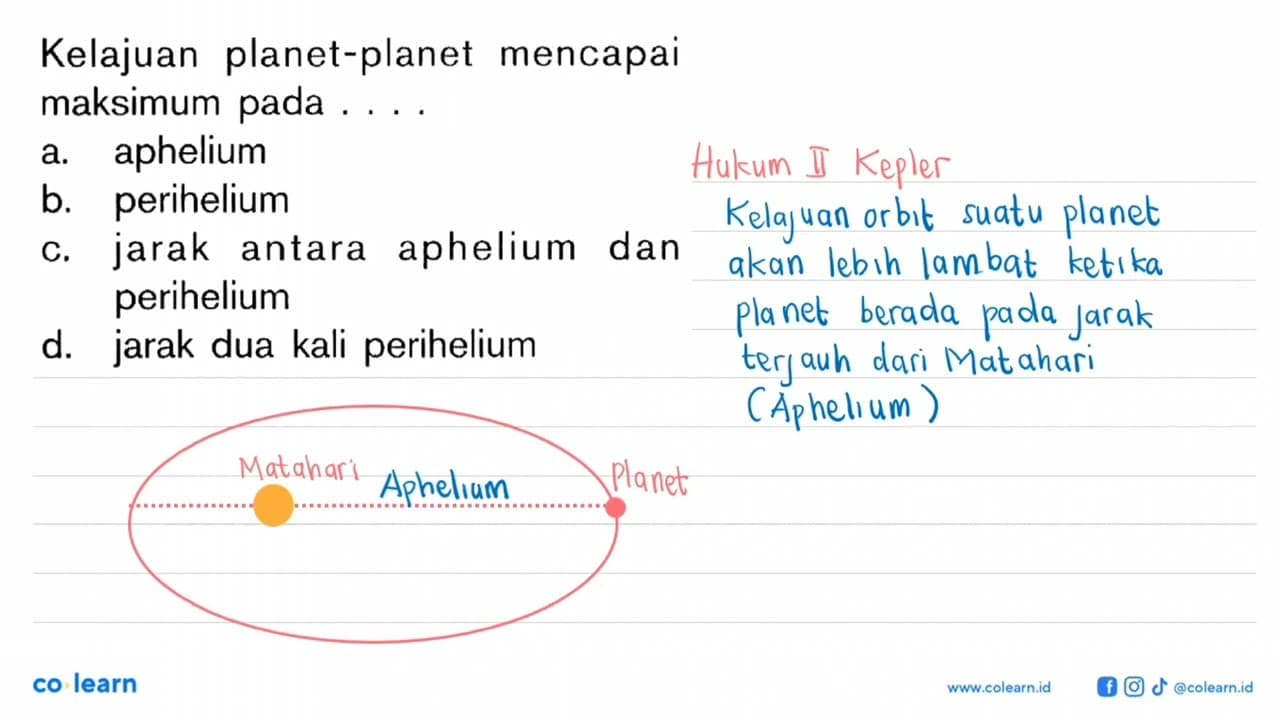 Kelajuan planet-planet mencapai
maksimum pada . . . .
a. aphelium
b. perihelium
c. jarak antara aphelium dan
perihelium
d. jarak dua kali perihelium
Hukum II Kepler
Kelajuan orbit suatu planet
akan lebih lambat ketika
planet berada pada jarak
terjauh dari Matahari
(Aphelium)
Matahari
Aphelium
Planet
co learn
www.colearn.id
@colearn.id